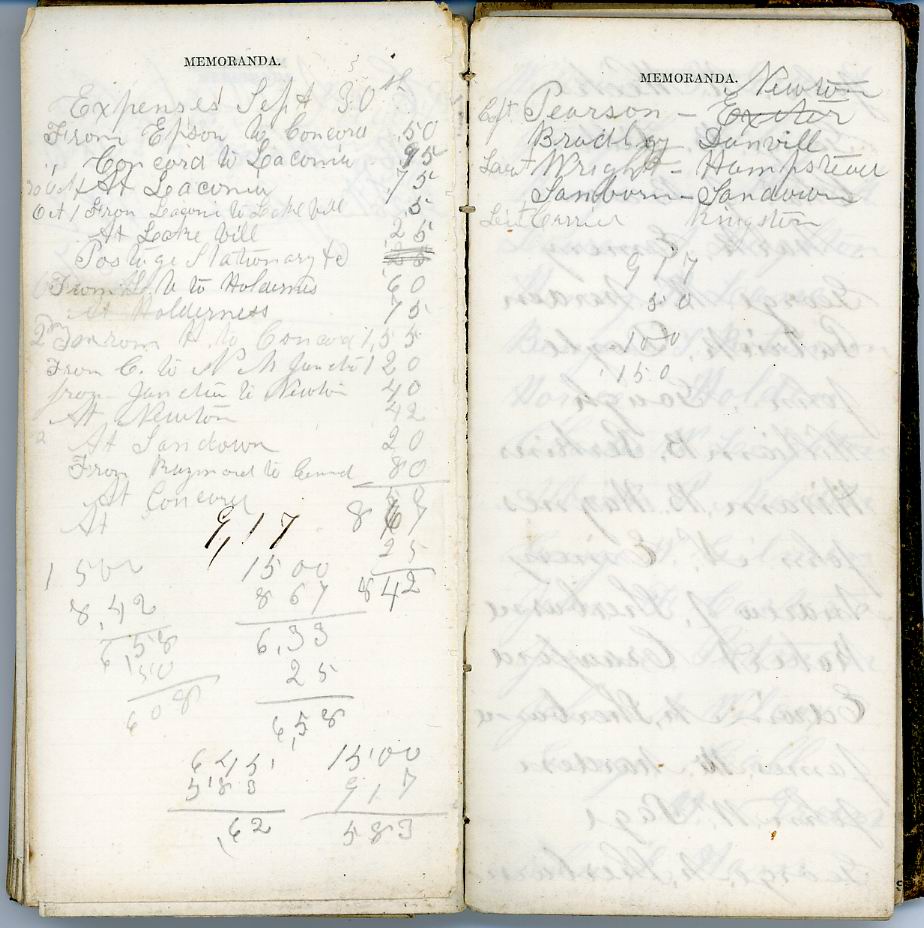 MEMORANDA.
Expenses Sept 30th
From Epson to Concord .50
" Concord to Laconia 95
At Laconia .75
Oct 1 From Laconi to Lake Vill 5
At Lake Vill .25
Postage Stationary &c 25
From to Holderness 60
At Holderness 75
From H. to Concord 1,55
From C. to N M Junct 1 20
from Junction to Newton 40
At Newton 42
At Sandown 20
From Raymond to 80
At Concord 50
At 9,17 8 67
25
8 42
1500
8,42
6,58
50
608
1500
8 67
6,33
25
6,58
645
583
,62
1500
917
583
MEMORANDA.
Newton
Capt Pearson – Exeter
Bradley Danvill
Wright – Hampstead
Sanborn – Sandown
Lieut Currier Kingston
917
50
100
150